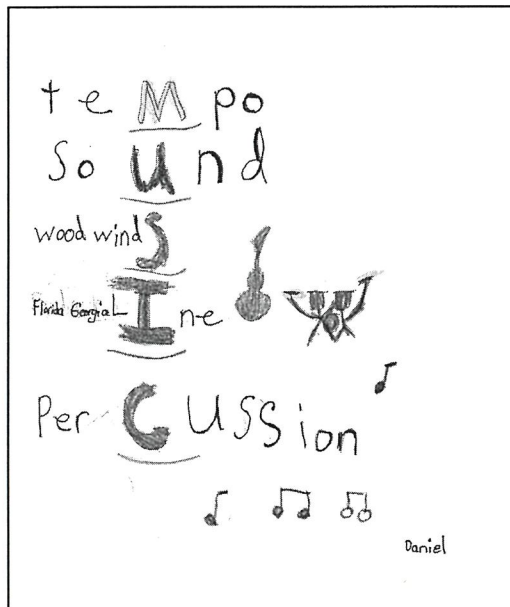 teMpo
soUnd
woodwindS
Florida GeorgiaLIne
PerCUSSion
Daniel